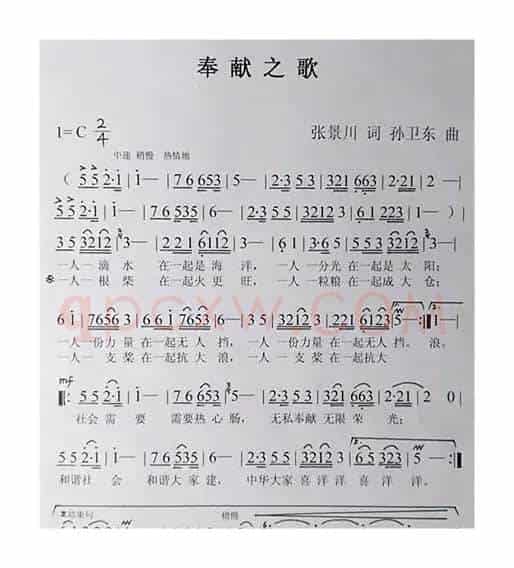 奉献之歌
1=C 2/4
张景川 词 孙卫东 曲
中速 稍慢 热情地
( 5 5 2·1 | 1— | 7 6 653 | 5— | 2·3 5 3 | 321 663 | 2·21 | 2—|
5 5 2·1 | 1— | 7 6 535 | 6— | 2·3 5 5 | 3212 3 | 6·1 223 | 1—)|
3 5 3212 | 3— | 2 2 1 6112 | 3—
一人一滴水 在一起是海洋, 一人一分光在一起是太阳;
一人一根柴 在一起火更旺, 一人一粒粮在一起成大仓;
qpcxw.COM
6 1 | 7656 3 | 6 6 1 7653
一人一份力量在一起无人挡, 一人一份力量在一起无人挡。浪。
一人一支桨在一起抗大浪, 一人一支桨在一起抗大
mf
5 5 2·1 | 1— | 7 6 653 | 5— | 2·3 5 5 | 321 663 | 2·21 | 2—
社会需要 需要热心肠, 无私奉献 无限荣光;
5 5 2·1 | 1— | 7 6 535 | 6— | 2·3 5 5
和谐社会 和谐大家建, 中华大家喜洋洋喜洋洋。
结束句 稍慢